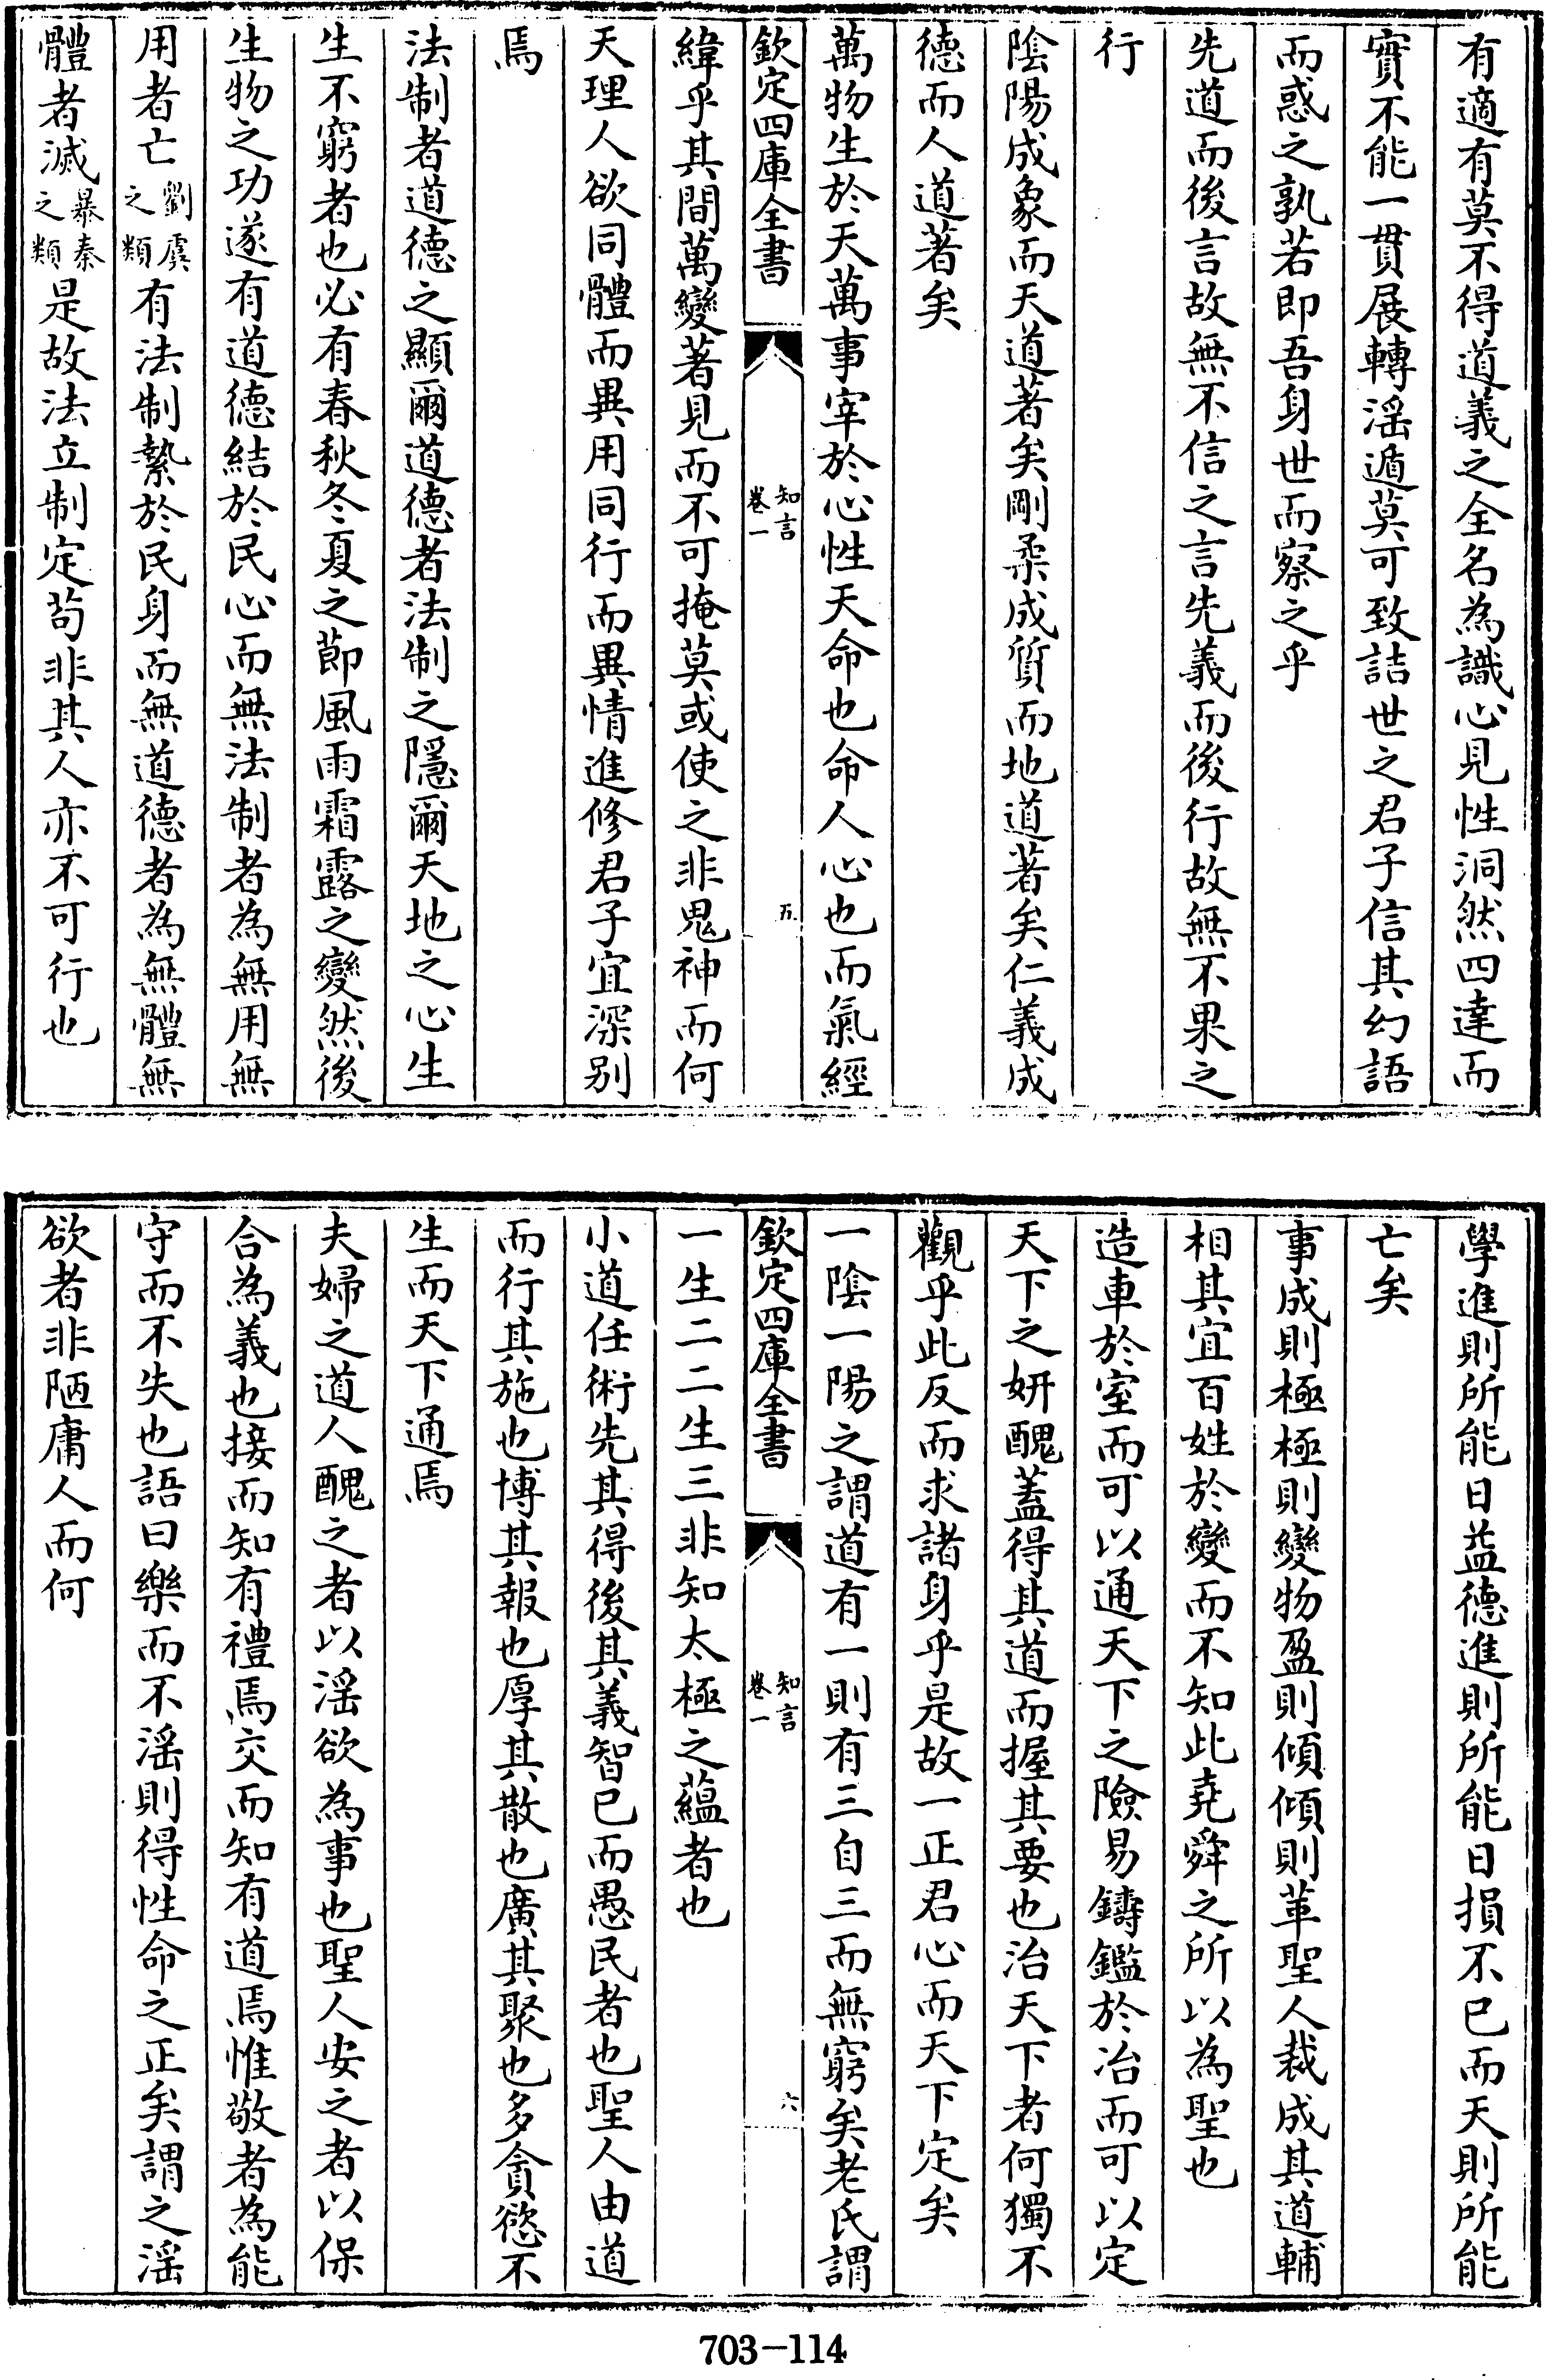 有適有莫不得道義之全名為識心見性洞然四達而
實不能一貫展轉滛遁莫可致詰世之君子信其幻語
而惑之孰若即吾身世而察之乎
先道而後言故無不信之言先義而後行故無不果之
行
陰陽成象而天道著矣剛柔成質而地道著矣仁義成
德而人道著矣
萬物生於天萬事宰於心性天命也命人心也而氣經
欽定四庫全書
知言
卷一
五
緯乎其間萬變著見而不可掩莫或使之非鬼神而何
天理人欲同體而異用同行而異情進修君子宜深別
焉
法制者道德之顯爾道德者法制之隱爾天地之心生
生不窮者也必有春秋冬夏之節風雨霜露之變然後
生物之功遂有道德結於民心而無法制者為無用無
用者亡劉虞之類有法制縶於民身而無道德者為無體無
體者滅暴秦之類是故法立制定茍非其人亦不可行也
學進則所能日益德進則所能日損不已而天則所能
亡矣
事成則極極則變物盈則傾傾則革聖人裁成其道輔
相其宜百姓於變而不知此堯舜之所以為聖也
造車於室而可以通天下之險易鑄鑑於冶而可以定
天下之妍醜蓋得其道而握其要也治天下者何獨不
觀乎此反而求諸身乎是故一正君心而天下定矣
一陰一陽之謂道有一則有三自三而無窮矣老氏謂
欽定四庫全書
知言
卷一
六
一生二二生三非知太極之蘊者也
小道任術先其得後其義智已而愚民者也聖人由道
而行其施也博其報也厚其散也廣其聚也多貪慾不
生而天下通焉
夫婦之道人醜之者以滛欲為事也聖人安之者以保
合為義也接而知有禮焉交而知有道焉惟敬者為能
守而不失也語曰樂而不滛則得性命之正矣謂之滛
欲者非陋庸人而何
703-114